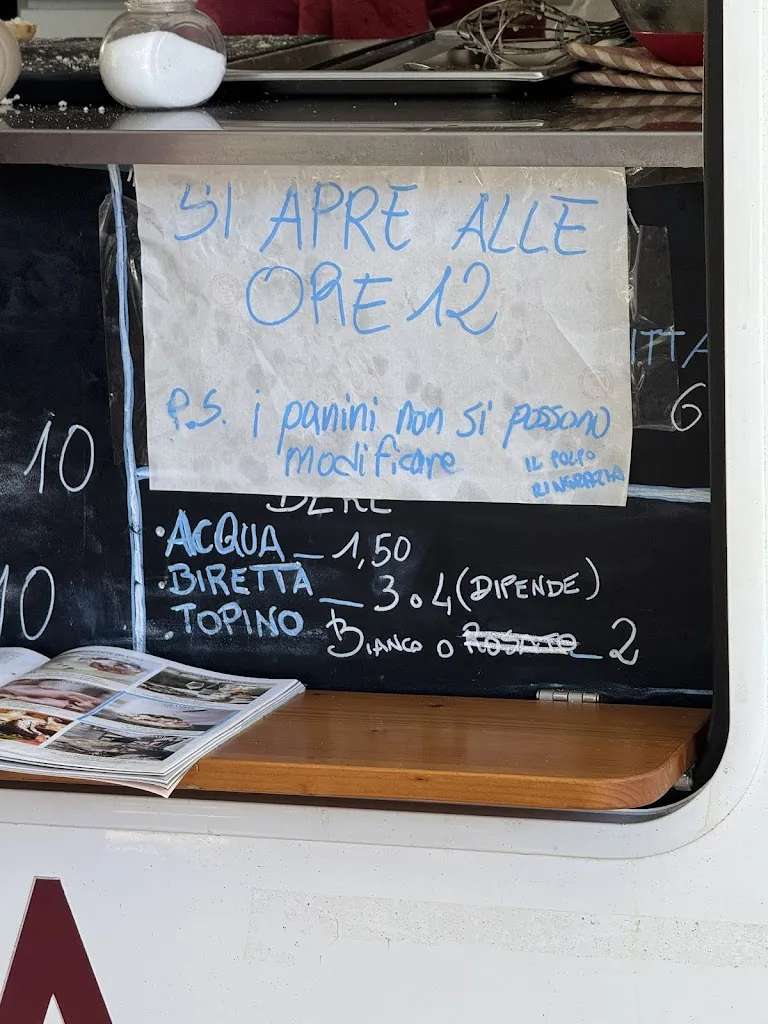 SI APRE ALLE
ORE 12
P.S. i panini non si possono
modificare
IL POLPO
RINGRAZIA
ITTA
6
10
10
BERE
• ACQUA _ 1,50
• BIRETTA _ 3 o 4 (DIPENDE)
• TOPINO BIANCO O ROSATO _ 2
A